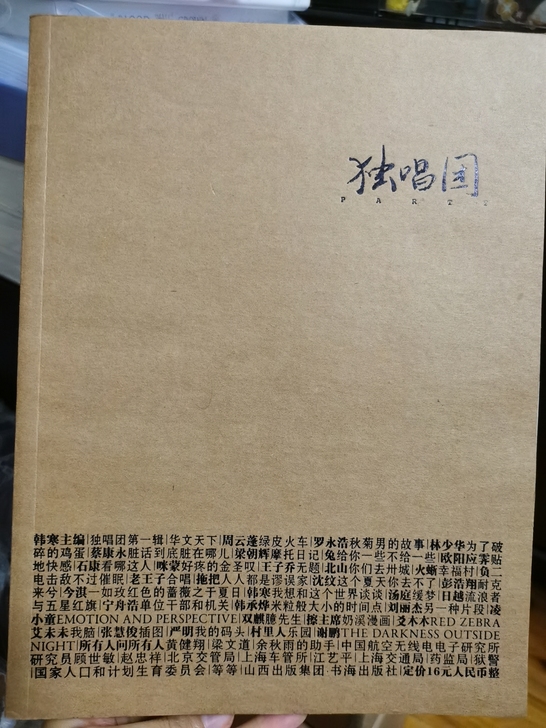 独唱团
PARTY
韩寒主编|独唱团第一辑|华文天下|周云蓬绿皮火车|罗永浩秋菊男的故事|林少华为了破
碎的鸡蛋|蔡康永脏话到底脏在哪儿|梁朝辉摩托日记|兔给你一些不给一些|欧阳应霁贴
地快感|石康看哪这人|咪蒙好疼的金圣叹|王子乔无题|北山你们去卅城|火蜥幸福村|负二
电击敌不过催眠|老王子合唱|拖把人人都是谬误家|沈纹这个夏天你去不了|彭浩翔耐克
来兮|今淇一如玫红色的蔷薇之于夏日|韩寒我想和这个世界谈谈|汤庭缓梦|日越流浪者
与五星红旗|宁舟浩单位干部和机关|韩承烨米粒般大小的时间点|刘丽杰另一种片段|凌
小童EMOTION AND PERSPECTIVE|双麒臆先生|擦主席奶溪漫画|爻木木RED ZEBRA
艾未未我脑|张慧俊插图|严明我的码头|村里人乐园|谢鹏THE DARKNESS OUTSIDE
NIGHT|所有人问所有人黄健翔|梁文道|余秋雨的助手|中国航空无线电电子研究所
研究员顾世敏|赵忠祥|北京交管局|上海车管所|江艺平|上海交通局|药监局|狱警
|国家人口和计划生育委员会|等等|山西出版集团 书海出版社|定价16元人民币整